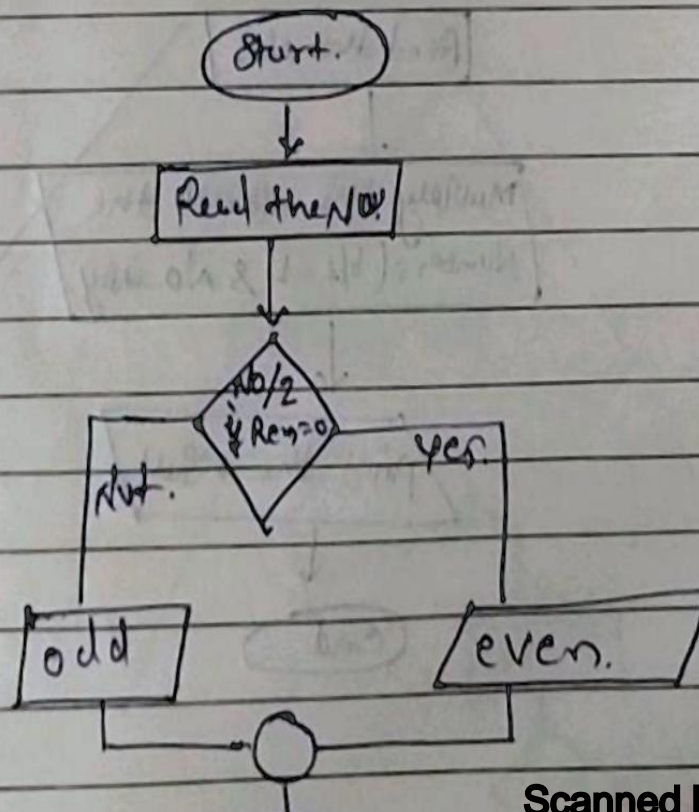 Start.
Read the No.
No/2
if Rem=0
Not.
yes.
odd
even.
Scanned